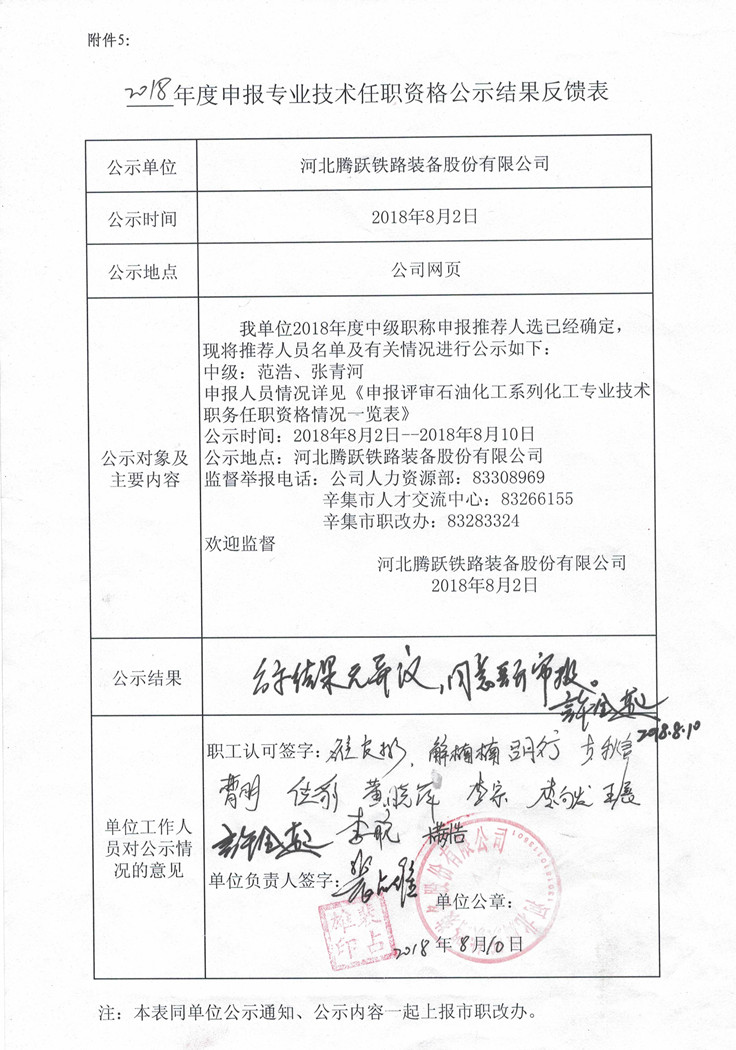 附件5:
2018年度申报专业技术任职资格公示结果反馈表
公示单位
河北腾跃铁路装备股份有限公司
公示时间
2018年8月2日
公示地点
公司网页
公示对象及
主要内容
我单位2018年度中级职称申报推荐人选已经确定，
现将推荐人员名单及有关情况进行公示如下：
中级：范浩、张青河
申报人员情况详见《申报评审石油化工系列化工专业技术
职务任职资格情况一览表》
公示时间：2018年8月2日--2018年8月10日
公示地点：河北腾跃铁路装备股份有限公司
监督举报电话：公司人力资源部：83308969
辛集市人才交流中心：83266155
辛集市职改办：83283324
欢迎监督
河北腾跃铁路装备股份有限公司
2018年8月2日
公示结果
公示结果无异议，同意予审报。
2018.8.10
单位工作人
员对公示情
况的意见
职工认可签字： 解楠楠
曹明 黄晓萍 李宗 王晨
单位负责人签字：裴占雄
单位公章：
裴占雄印
2018年8月10日
注：本表同单位公示通知、公示内容一起上报市职改办。